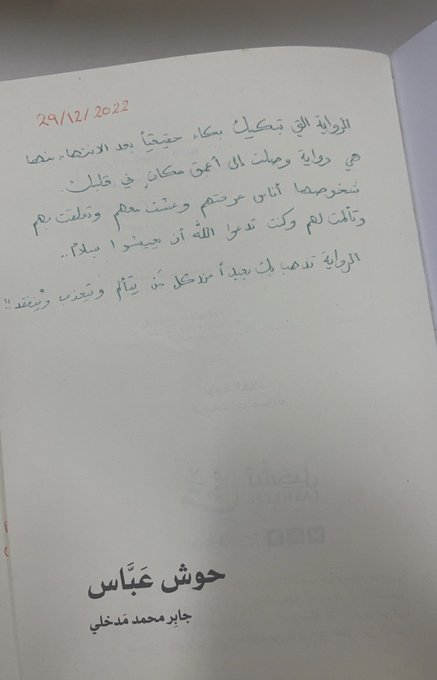 29/12/2022
الرواية التي تبكيك بكاء حقيقياً بعد الانتهاء منها
هي رواية وصلت إلى أعمق مكانٍ في قلبك..
شخوصها أناس عرفتهم وعشت معهم وتعلقت بهم
وتألمت لهم وكنت تدعوا الله أن يعيشوا بسلام..
الرواية تذهب بك بعيداً عن كل من يتألم ويتعذب ويُفقد!!
حوش عَبَّاس
جابِر محمد مَدخلي